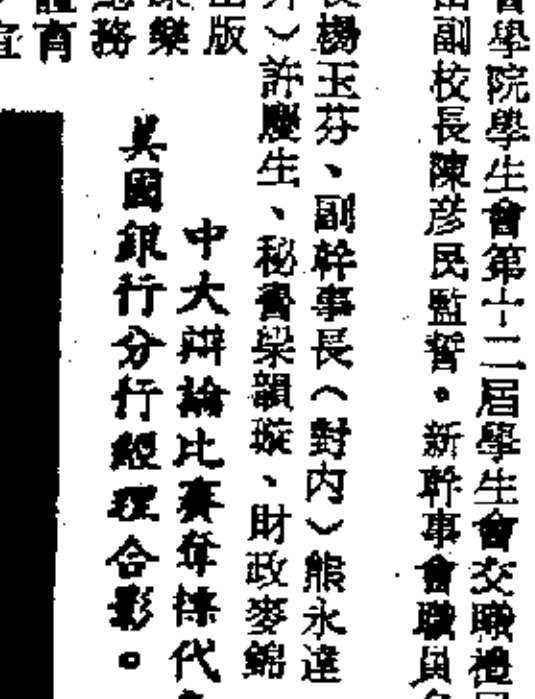 學院學生會第十二屆學生會交職禮
副校長陳彥民監誓。新幹事會職員
楊玉芬、副幹事長（對內）熊永達
）許慶生、秘書梁韻璇、財政麥錦
出版
康樂
總務
中大辯論比賽奪標代
美國銀行分行經理合影。
育
宜